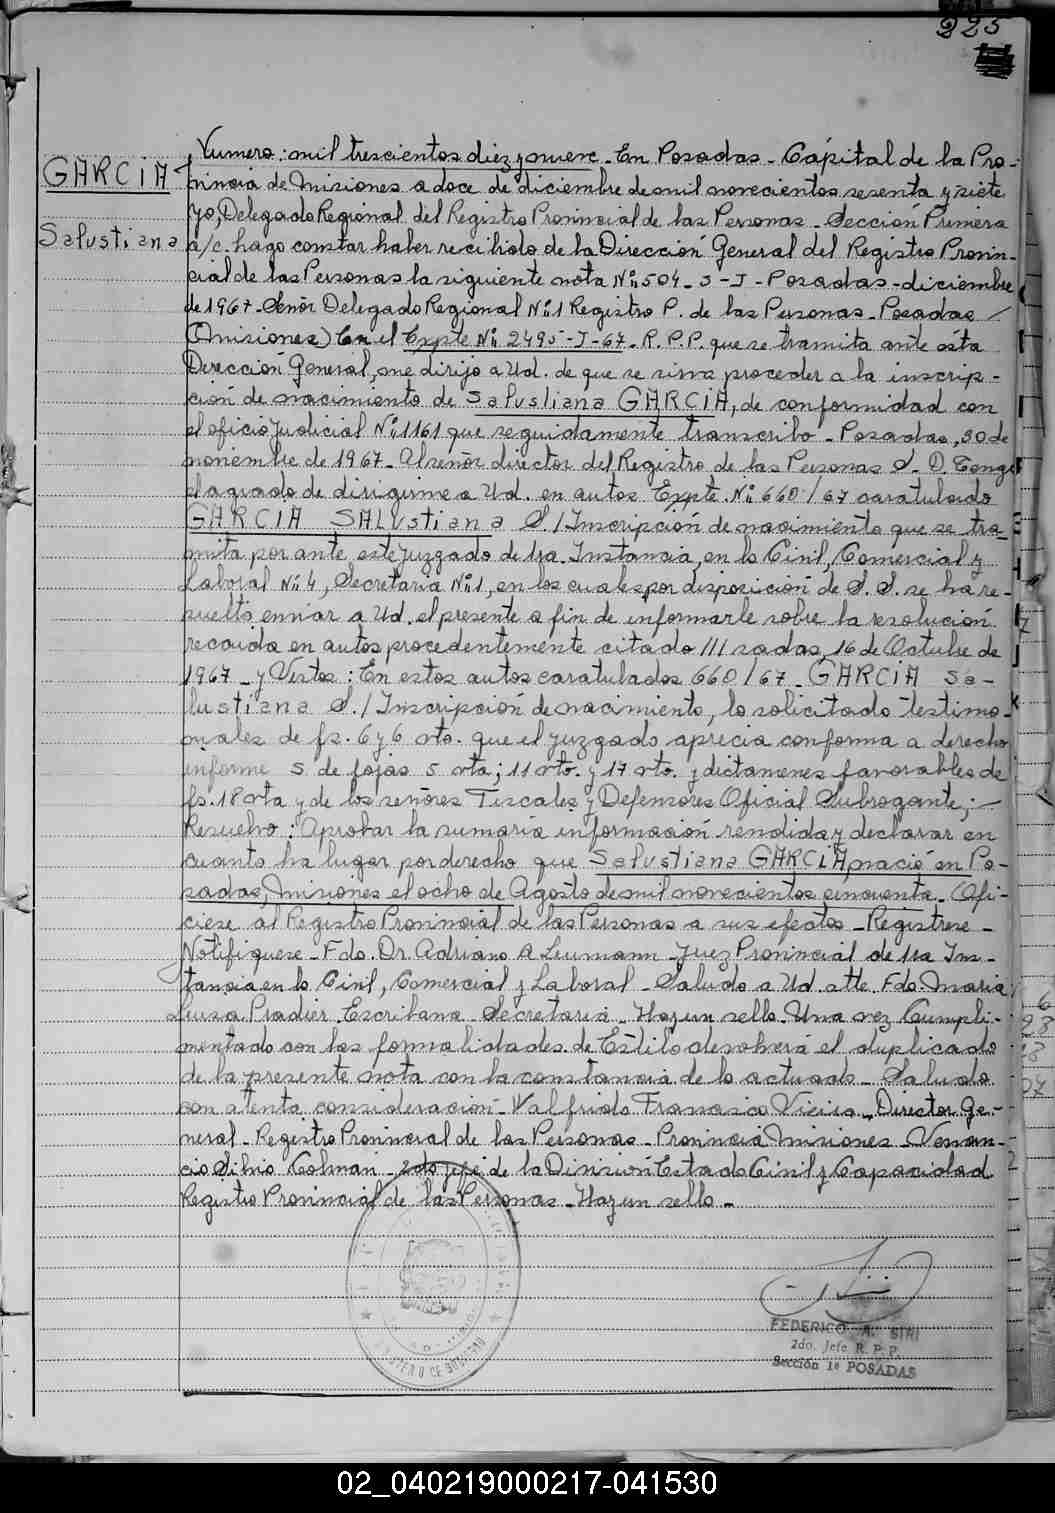 225
GARCIA
Salustiana
Numero: mil trescientos diez y nueve - En Posadas - Cápital de la Pro-
vincia de Misiones a doce de diciembre de mil novecientos sesenta y siete
Yo, Delegado Regional del Registro Provincial de las Personas - Sección Primera
a/c. hago constar haber recibido de la Dirección General del Registro Provin-
cial de las Personas la siguiente nota Nº 504 - S - J - Posadas - diciembre
de 1967 - Señor Delegado Regional Nº 1 Registro P. de las Personas - Posadas
(Misiones) En el Expte Nº 2495 - J - 67 - R. P. P. que se tramita ante ésta
Dirección General, me dirijo a Ud. de que se sirva proceder a la inscrip-
ción de nacimiento de Salustiana GARCIA, de conformidad con
el oficio Judicial Nº 1161 que seguidamente transcribo - Posadas, 30 de
noviembre de 1967 - Al señor director del Registro de las Personas S. D. Tengo
el agrado de dirigirme a Ud. en autos Expte. Nº 660/67 caratulado
GARCIA SALUstiana S./Inscripción de nacimiento que se tra-
mita por ante este Juzgado de 1ra. Instancia, en lo Civil, Comercial y
Laboral Nº 4, Secretaria Nº 1, en los cuales por disposición de S. S. se ha re-
suelto enviar a Ud. el presente a fin de informarle sobre la resolución
recaida en autos procedentemente citado /// sadas, 16 de Octubre de
1967 - y Vistos: En estos autos caratulados 660/67 - GARCIA Sa-
lustiana S./Inscripción de nacimiento, lo solicitado testimo-
niales de fs. 6 y 6 vto. que el juzgado aprecia conforma a derecho
informe S. de fojas 5 vta; 11 vto. y 17 vto. y dictamenes favorables de
fs. 18 vta y de los señores Fiscales y Defensores Oficial Subrogante; -
Resuelvo: Aprobar la sumaria información rendida y declarar en
cuanto ha lugar por derecho que Salustiana GARCIA nació en Po-
sadas, Misiones el ocho de Agosto de mil novecientos cincuenta - Ofi-
ciese al Registro Provincial de las Personas a sus efectos - Registrese -
Notifiquese - Fdo. Dr. Adriano A Leumann - Juez Provincial de 1ra Ins-
tancia en lo Civil, Comercial y Laboral - Saludo a Ud. atte. Fdo. Maria
Luisa Pradier Escribana Secretaria - Hay un sello. Una vez Cumpli-
mentado con las formalidades de Estilo devolverá el duplicado
de la presente nota con la constancia de lo actuado - Saludo
con atenta consideración - Valfrido Francisco Vieira - Director Ge-
neral - Registro Provincial de las Personas - Provincia Misiones Venan-
cio Silvio Colman - 2do jefe de la División Estado Civil y Capacidad
Registro Provincial de las Personas - Hay un sello -
FEDERICO A. SIRI
2do. Jefe R. P. P.
Sección 1ª POSADAS
02_040219000217-041530